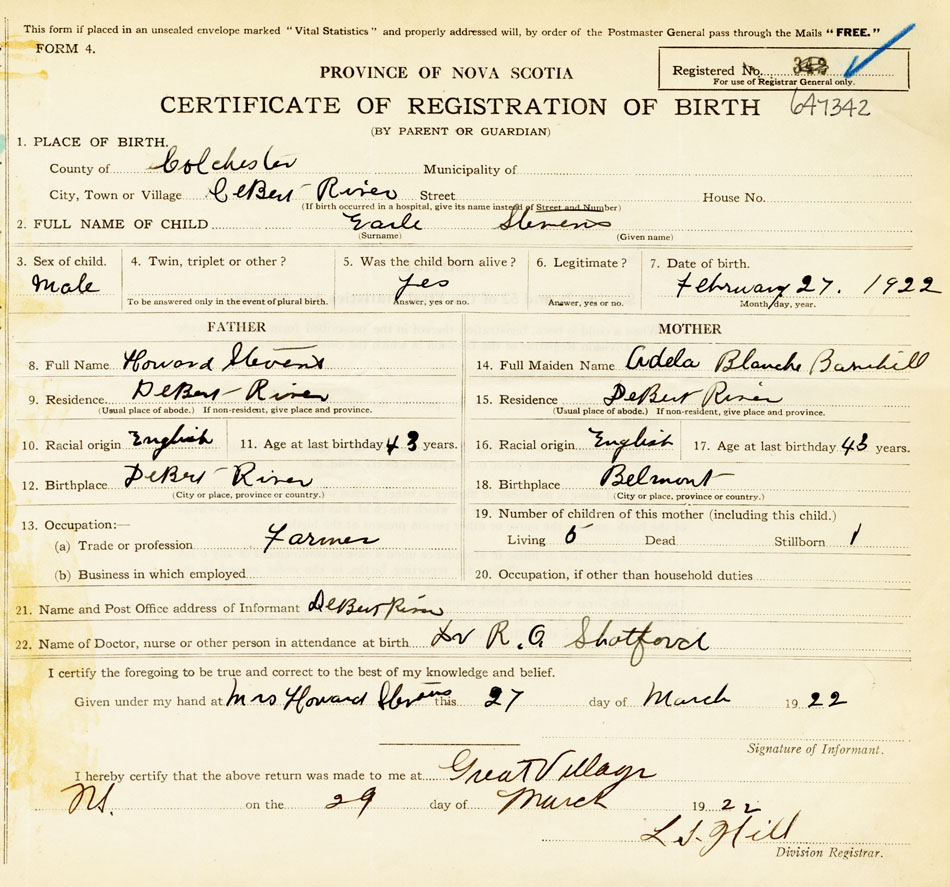 This form if placed in an unsealed envelope marked "Vital Statistics" and properly addressed will, by order of the Postmaster General pass through the Mails "FREE."
FORM 4.
PROVINCE OF NOVA SCOTIA
Registered No. 342
For use of Registrar General only.
CERTIFICATE OF REGISTRATION OF BIRTH 647342
(BY PARENT OR GUARDIAN)
1. PLACE OF BIRTH.
County of Colchester Municipality of
City, Town or Village DeBert River Street House No.
(If birth occurred in a hospital, give its name instead of Street and Number)
2. FULL NAME OF CHILD Earle Stevens
(Surname) (Given name)
3. Sex of child. 4. Twin, triplet or other? 5. Was the child born alive? 6. Legitimate? 7. Date of birth.
Male yes February 27. 1922
To be answered only in the event of plural birth. Answer, yes or no. Answer, yes or no. Month, day, year.
FATHER MOTHER
8. Full Name Howard Stevens 14. Full Maiden Name Adela Blanche Barnhill
9. Residence. DeBert River 15. Residence DeBert River
(Usual place of abode.) If non-resident, give place and province. (Usual place of abode.) If non-resident, give place and province.
10. Racial origin English 11. Age at last birthday 43 years. 16. Racial origin English 17. Age at last birthday 43 years.
12. Birthplace DeBert River 18. Birthplace Belmont
(City or place, province or country.) (City or place, province or country.)
13. Occupation:— 19. Number of children of this mother (including this child.)
(a) Trade or profession Farmer Living 5 Dead Stillborn 1
(b) Business in which employed 20. Occupation, if other than household duties
21. Name and Post Office address of Informant DeBert River
22. Name of Doctor, nurse or other person in attendance at birth Dr R. A Shatford
I certify the foregoing to be true and correct to the best of my knowledge and belief.
Given under my hand at Mrs Howard Stevens this 27 day of March 19 22
Signature of Informant.
I hereby certify that the above return was made to me at Great Village
NS. on the 29 day of March 19 22
Hill
Division Registrar.